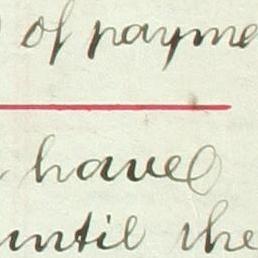 of payme
have
until the